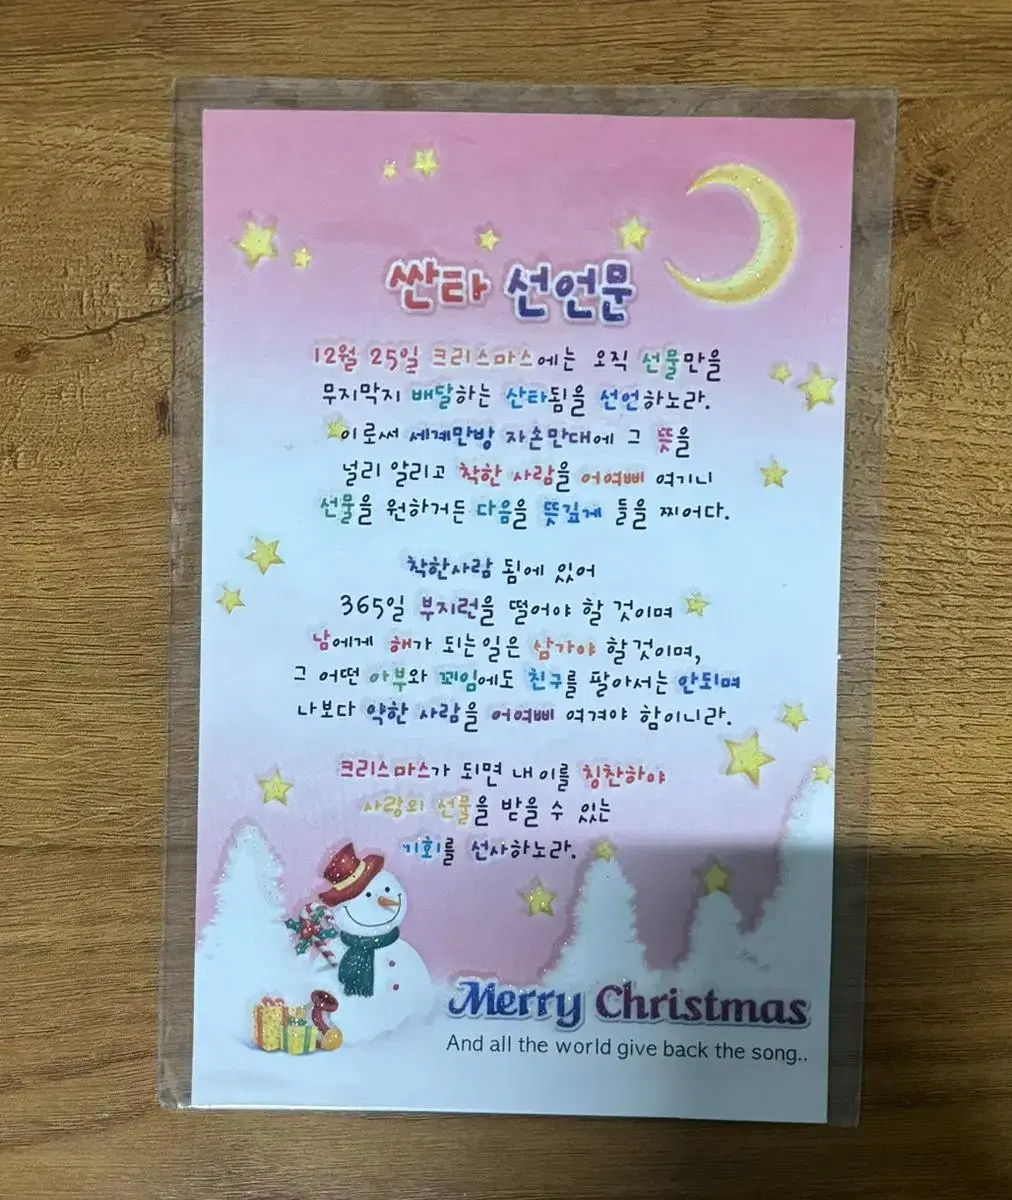 싼타 선언문
12월 25일 크리스마스에는 오직 선물만을
무지막지 배달하는 산타됨을 선언하노라.
이로써 세계만방 자손만대에 그 뜻을
널리 알리고 착한 사람을 어여삐 여기니
선물을 원하거든 다음을 뜻깊게 들을 찌어다.
착한사람 됨에 있어
365일 부지런을 떨어야 할 것이며
남에게 해가 되는일은 삼가야 할것이며,
그 어떤 아부와 꾀임에도 친구를 팔아서는 안되며
나보다 약한 사람을 어여삐 여겨야 함이니라.
크리스마스가 되면 내 이를 칭찬하야
사랑의 선물을 받을 수 있는
기회를 선사하노라.
Merry Christmas
And all the world give back the song..